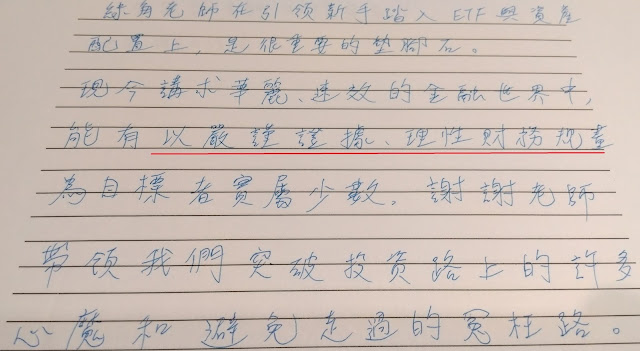 綠角老師在引領新手踏入 ETF 與資產
配置上，是很重要的墊腳石。
現今講求華麗、速效的金融世界中，
能有以嚴謹證據、理性財務規畫
為自標者實屬少數。謝謝老師
帶領我們突破投資路上的許多
心魔和避免走過的冤枉路。